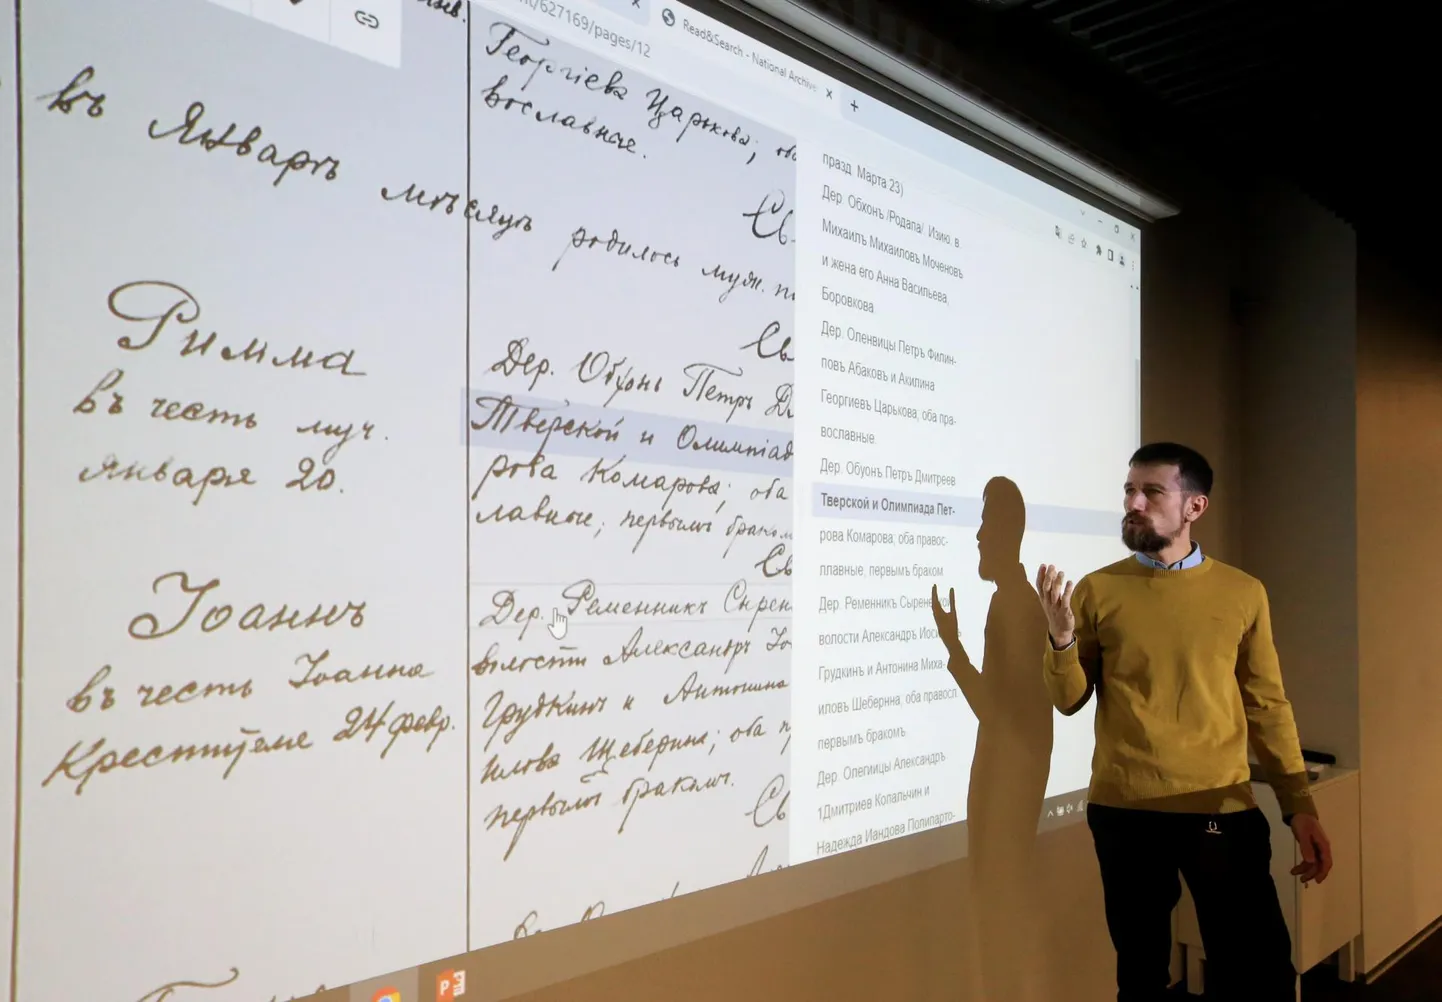 nt/627169/pages/12
Read&Search - National Archive
Георгіева Царькова; оба
вославные.
въ Январѣ мѣсяцѣ родилось муж. п
Св.
Римма
въ честь муч.
января 20.
Дер. Обхонь Петръ Д
Тверской и Олимпіад
рова Комарова; оба
лавные, первымъ браком
Св
Іоаннъ
въ честь Іоанна
Крестителя 24 февр.
Дер. Ременникъ Сырен
волости Александръ Іо
Грудкинъ и Антонина
илова Щеберина; оба п
первымъ бракомъ.
Св
празд. Марта 23)
Дер. Обхонъ /Родапа/. Изию, в
Михаилъ Михаиловъ Моченовъ
и жена его Анна Васильева,
Боровкова
Дер. Оленвицы Петръ Филин-
повъ Абаковъ и Акилина
Георгиевъ Царькова, оба пра-
вославные.
Дер. Обуонъ Петръ Дмитреев
Тверской и Олимпиада Пет-
рова Комарова; оба правос-
плавные; первымъ браком
Дер. Ременникъ Сырен
волости Александръ
Грудкинъ и Антонина Миха-
иловъ Шебернна, оба правосл.
первымъ бракомъ.
Дер. Олегиицы Александръ
1Дмитриев Копальчин и
Надежда Иандова Полипарто-